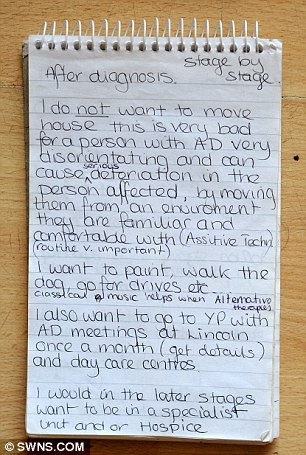 stage by
After diagnosis. stage.
I do not want to move
house this is very bad
for a person with AD very
disorientating and can
cause serious deteriation in the
person affected, by moving
them from an enviroment
they are familiar and
comfortable with (Assitive Techn)
(routine v. important)
I want to paint, walk the
dog, go for drives etc
classical music helps when Alternative
therapies
I also want to go to YP with
AD meetings at Lincoln
once a month (get details)
and day care centres.
I would in the later stages
want to be in a specialist
unit and or Hospice
© SWNS.com